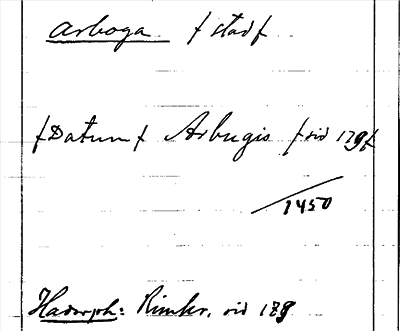 Arboga /stad/
/Datum/ Arbugis /vid 179/
1450
Hadorph: Rimkr. vid 178